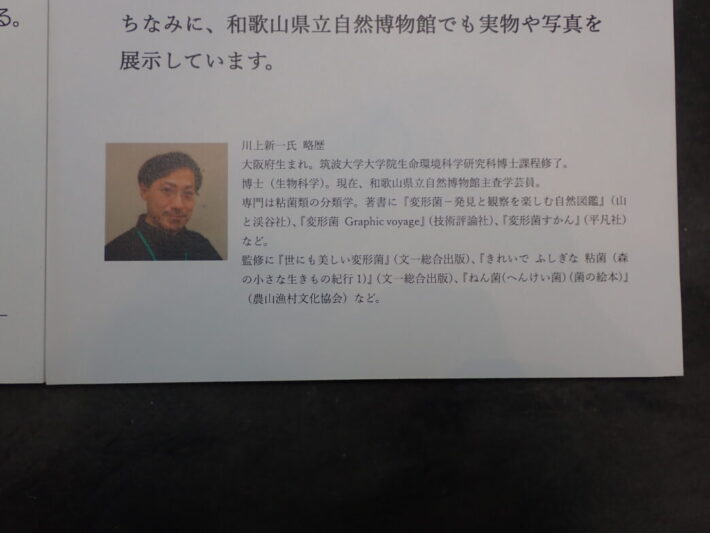 る。
ちなみに、和歌山県立自然博物館でも実物や写真を
展示しています。
川上新一氏 略歴
大阪府生まれ。筑波大学大学院生命環境科学研究科博士課程修了。
博士（生物科学）。現在、和歌山県立自然博物館主査学芸員。
専門は粘菌類の分類学。著書に『変形菌－発見と観察を楽しむ自然図鑑』（山
と渓谷社）、『変形菌 Graphic voyage』（技術評論社）、『変形菌ずかん』（平凡社）
など。
監修に『世にも美しい変形菌』（文一総合出版）、『きれいで ふしぎな 粘菌（森
の小さな生きもの紀行 1）』（文一総合出版）、『ねん菌(へんけい菌) (菌の絵本)』
（農山漁村文化協会）など。